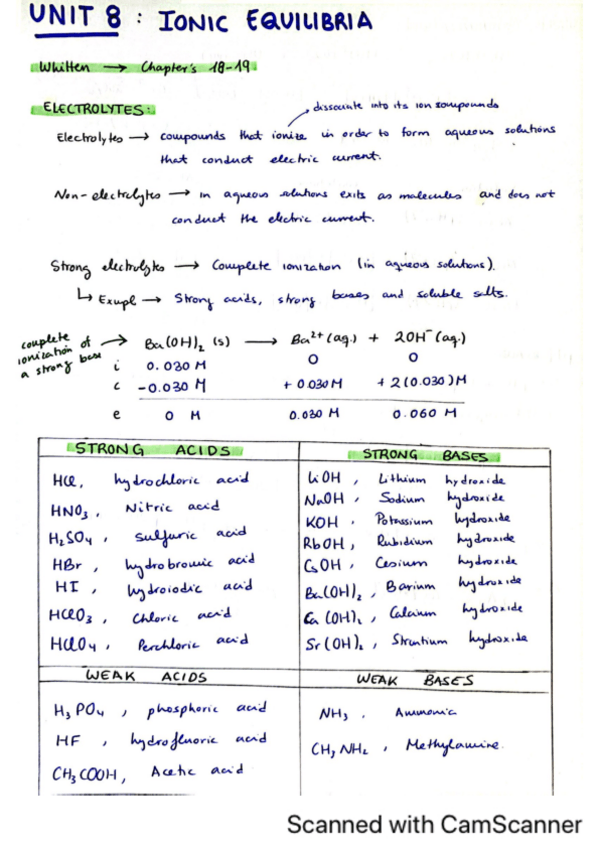 UNIT 8 : IONIC EQUILIBRIA
Whitten → Chapter's 18-19
ELECTROLYTES:
dissociate into its ion compounds
Electrolytes → compounds that ionize in order to form aqueous solutions
that conduct electric current.
Non-electrolytes → in aqueous solutions exits as molecules and does not
conduct the electric current.
Strong electrolytes → Complete ionization (in aqueous solutions).
↳ Exapl → Strong acids, strong bases and soluble salts.
complete ionization of a strong base → Ba(OH)₂ (s) → Ba²⁺(aq.) + 2OH⁻(aq.)
i 0.030 M 0 0
c -0.030 M + 0.030M + 2(0.030)M
e 0 M 0.030 M 0.060 M
STRONG ACIDS
HCl, hydrochloric acid
HNO₃, Nitric acid
H₂SO₄, sulfuric acid
HBr, hydrobromic acid
HI, hydroiodic acid
HClO₃, Chloric acid
HClO₄, Perchloric acid
STRONG BASES
LiOH, Lithium hydroxide
NaOH, Sodium hydroxide
KOH, Potassium hydroxide
RbOH, Rubidium hydroxide
CsOH, Cesium hydroxide
Ba(OH)₂, Barium hydroxide
Ca(OH)₂, Calcium hydroxide
Sr(OH)₂, Strontium hydroxide
WEAK ACIDS
H₃PO₄, phosphoric acid
HF, hydrofluoric acid
CH₃COOH, Acetic acid
WEAK BASES
NH₃, Ammonia
CH₃NH₂, Methylamine.
Scanned with CamScanner